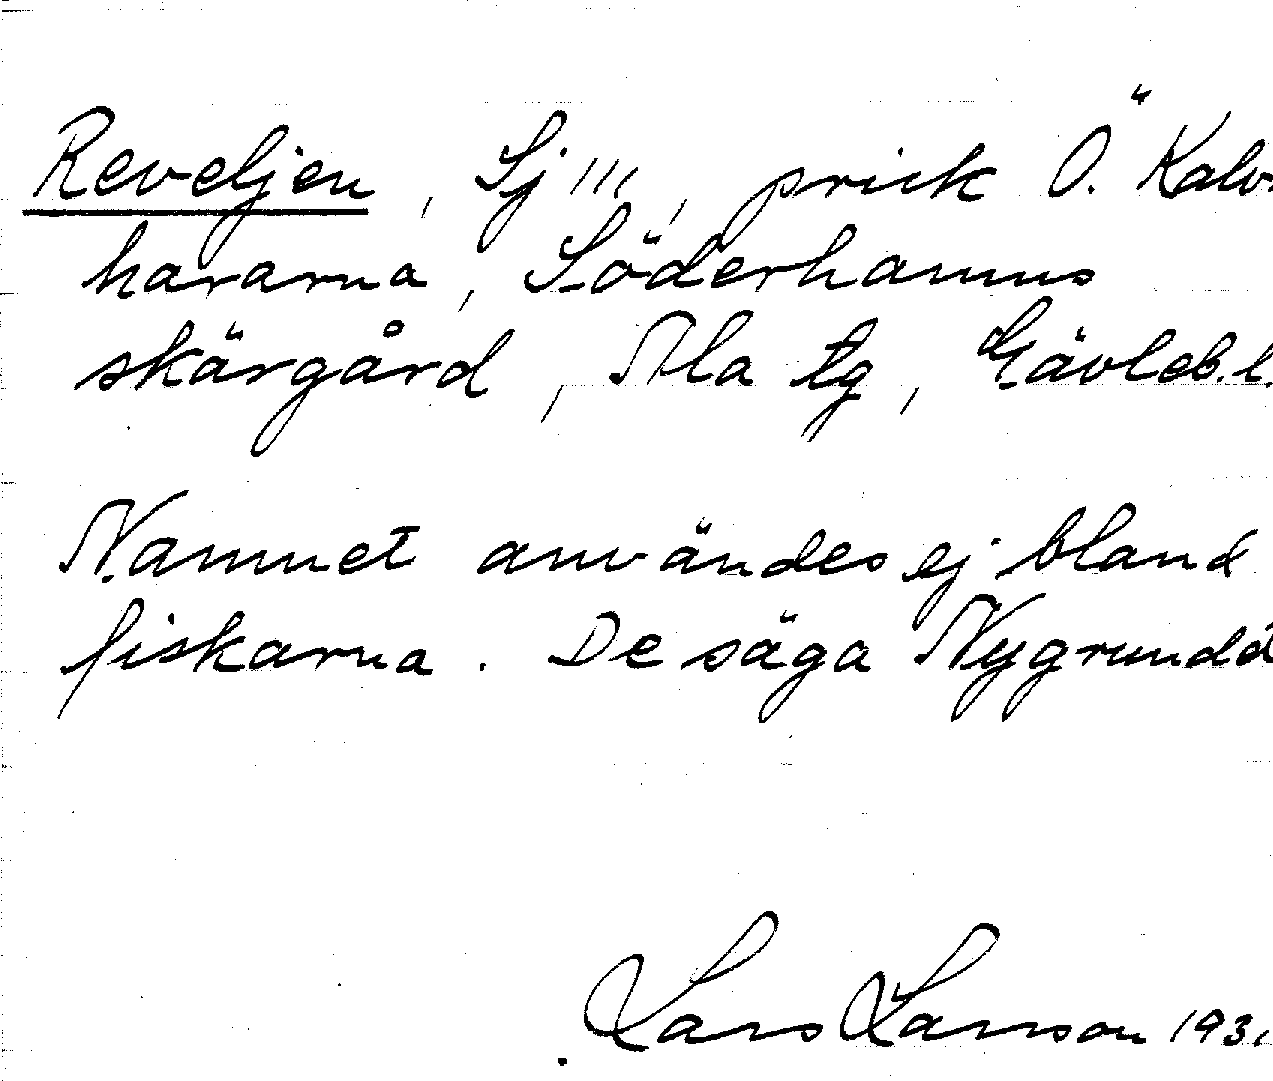 Reveljen, Sj III, prick Ö. Kalv-
hararna, Söderhamns
skärgård, Ala tg, Gävleb. l.
Namnet användes ej bland
fiskarna. De säga
Lars Larsson